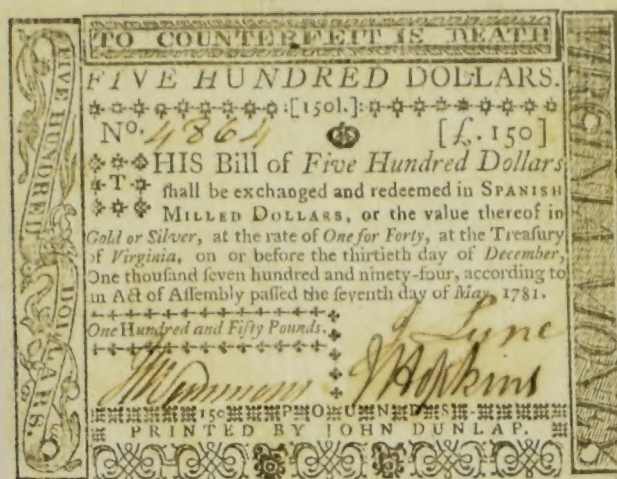 TO COUNTERFEIT IS DEATH
FIVE HUNDRED DOLLARS.
:[150l.]:
No. 4864 [£.150]
THIS Bill of Five Hundred Dollars
ſhall be exchanged and redeemed in SPANISH
MILLED DOLLARS, or the value thereof in
Gold or Silver, at the rate of One for Forty, at the Treaſury
of Virginia, on or before the thirtieth day of December,
One thouſand ſeven hundred and ninety-four, according to
an Act of Aſſembly paſſed the ſeventh day of May, 1781.
One Hundred and Fifty Pounds.
J Lyne
J Hopkins
150 POUNDS
PRINTED BY JOHN DUNLAP.
FIVE HUNDRED DOLLARS.
VIRGINIA MONEY